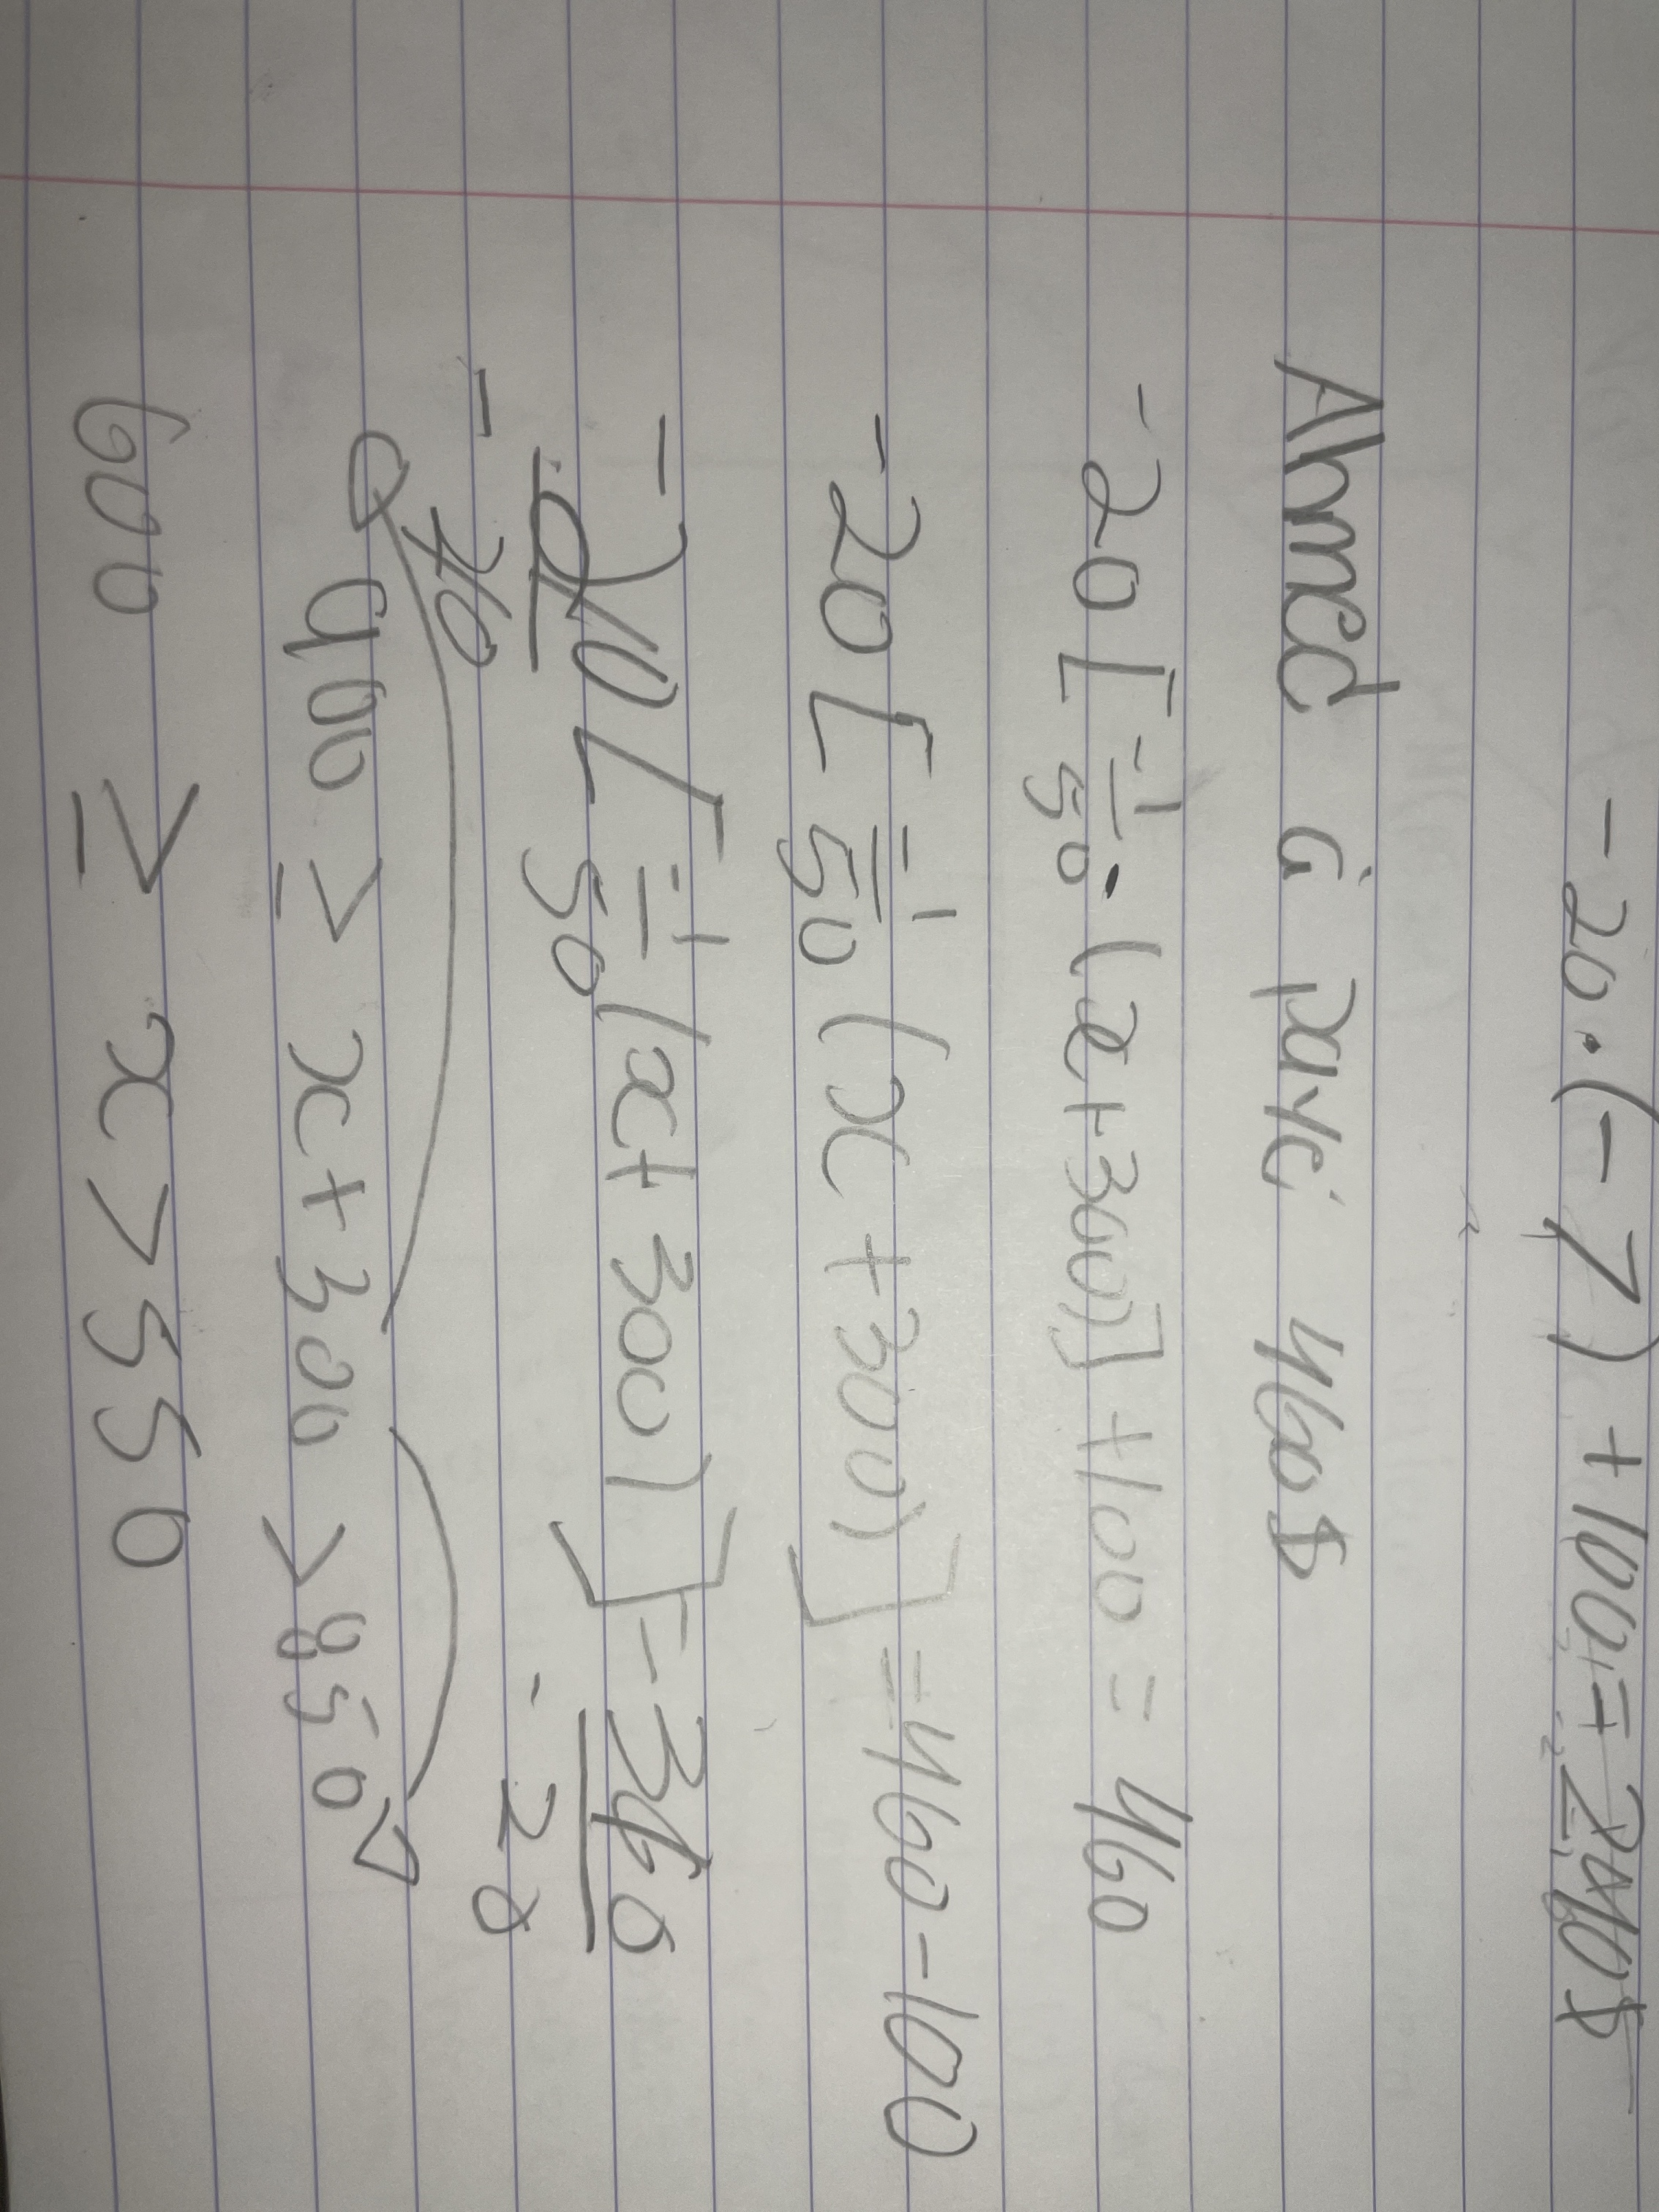 -20·(-7)+100=240$
Ahmed a payé 460$
-20[-1/50·(x+300)]+100=460
-20[-1/50(x+300)]=460-100
-20[-1/50(x+300)]=360
-20 -20
900 ≥ x+300 > 850
600 ≥ x > 550